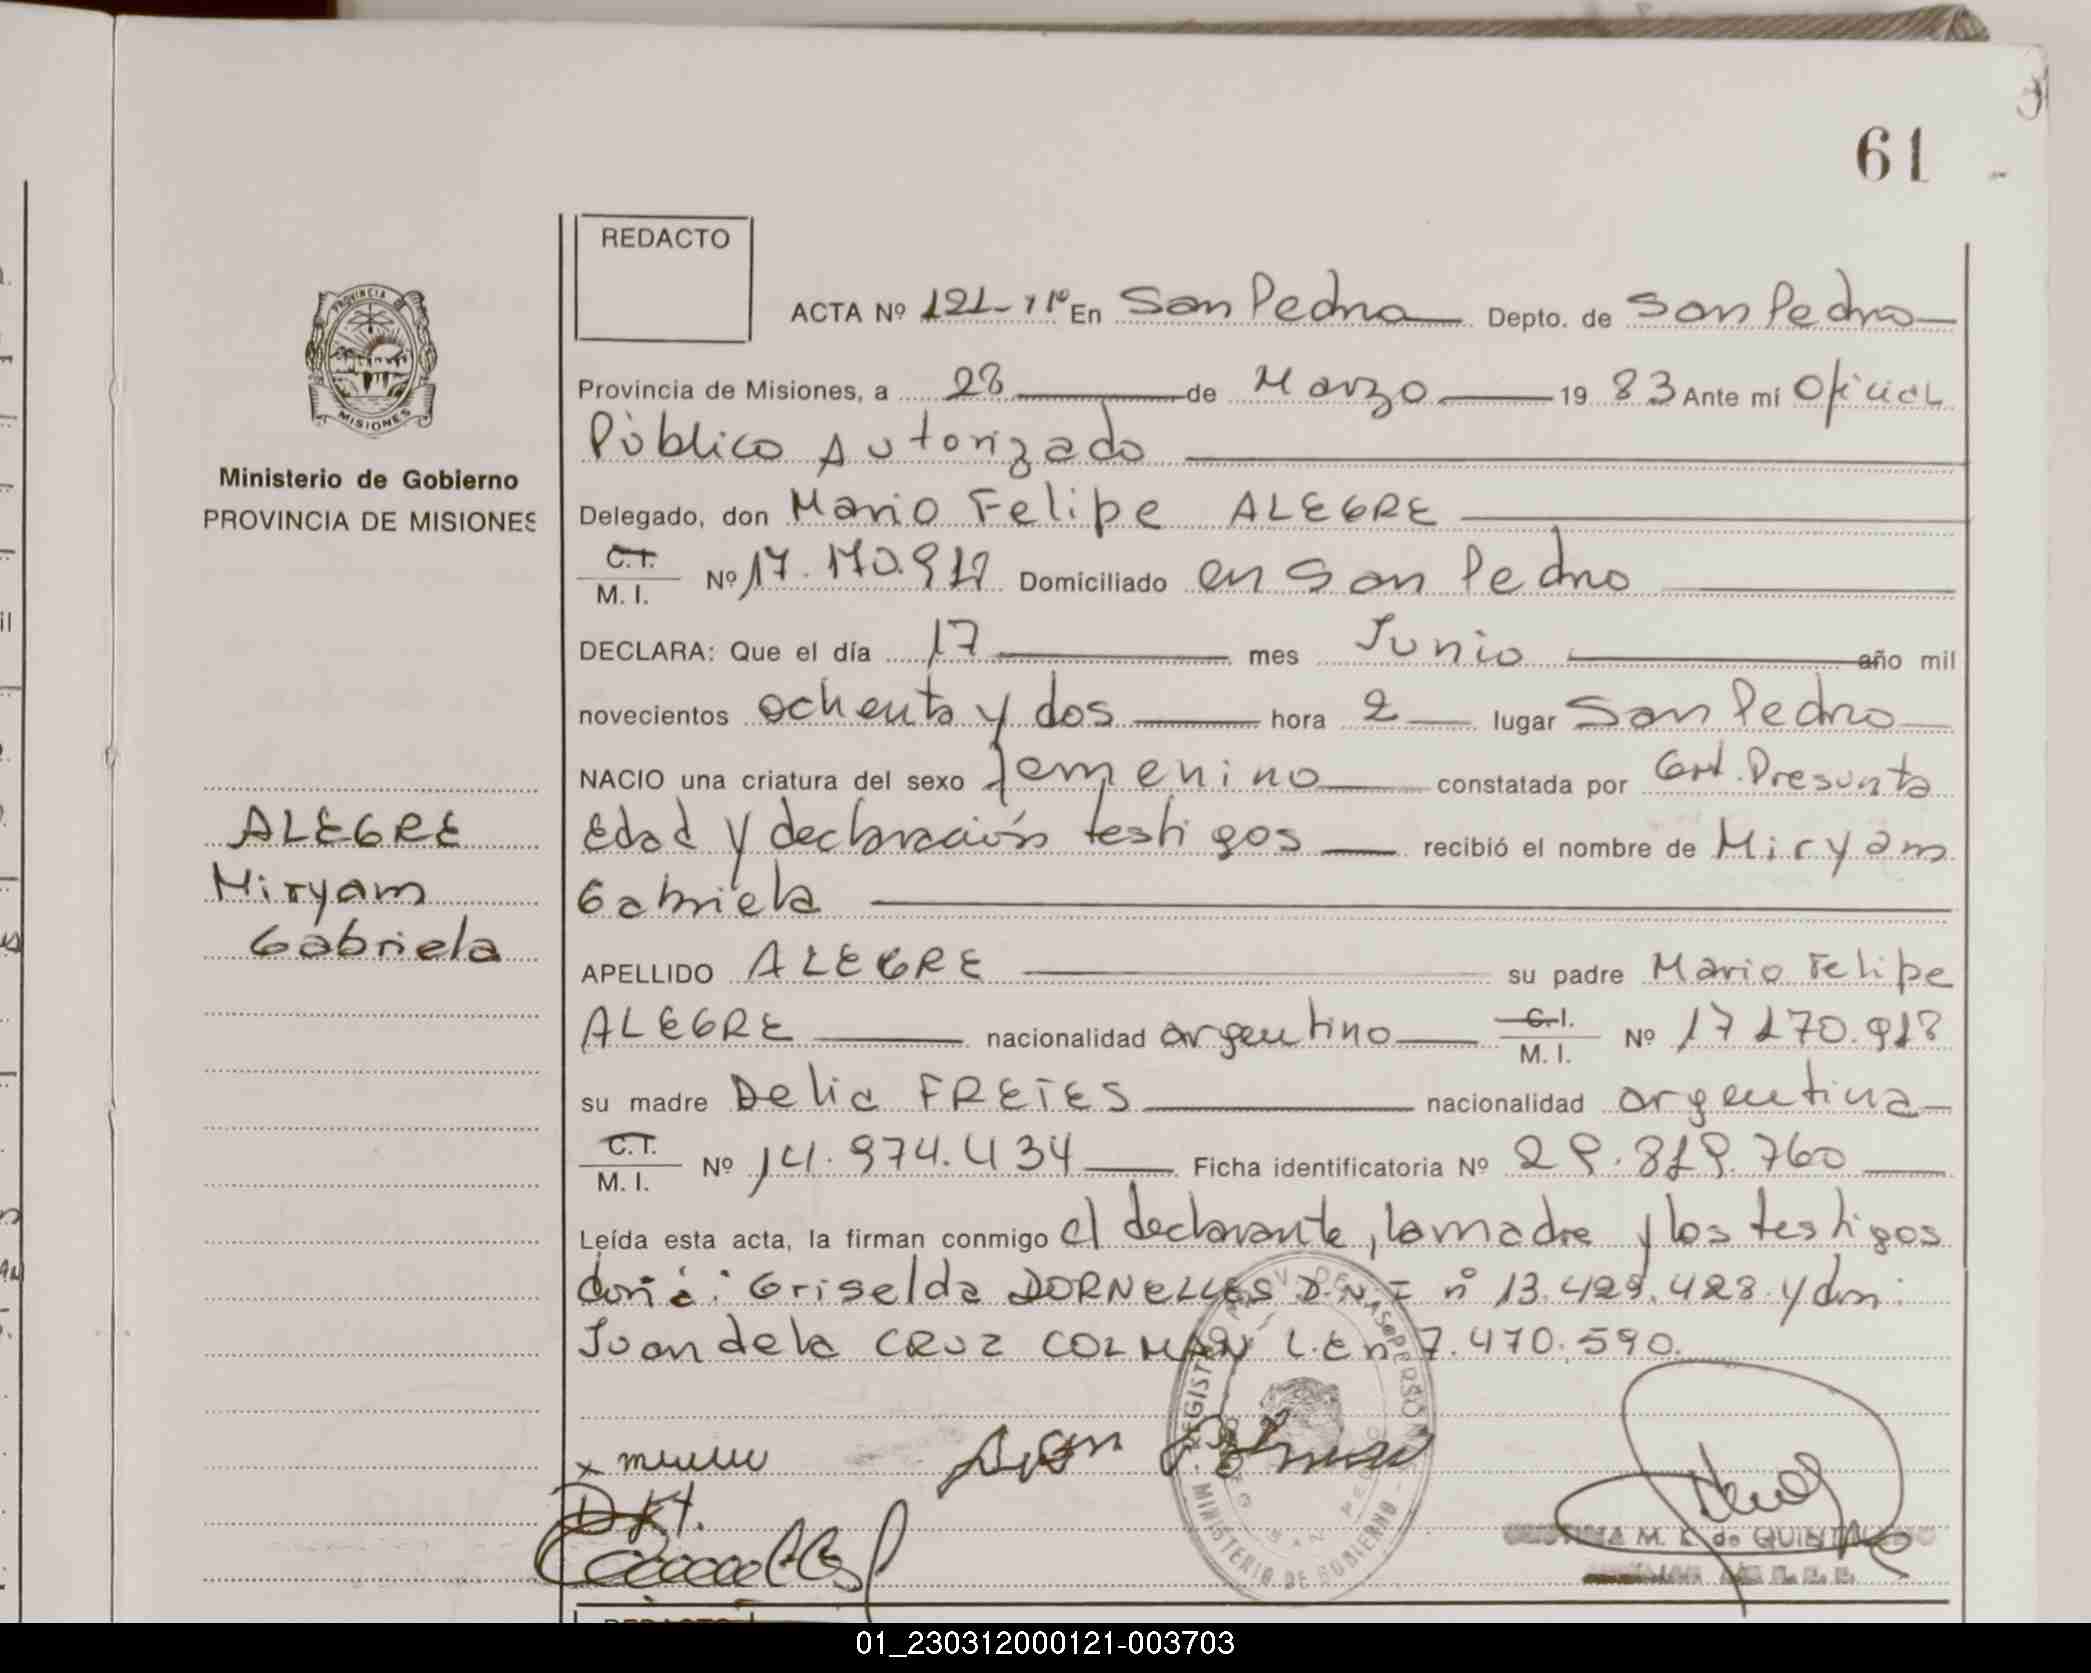 61
REDACTO
ACTA Nº 121-Tº En San Pedro Depto. de San Pedro
PROVINCIA
MISIONES
Provincia de Misiones, a 28 de Marzo 1983 Ante mí Oficial
Público Autorizado
Ministerio de Gobierno
PROVINCIA DE MISIONES
Delegado, don Mario Felipe ALEGRE
C.I.
M. I. Nº 17.170.918 Domiciliado en San Pedro
DECLARA: Que el día 17 mes Junio año mil
novecientos ochenta y dos hora 2 lugar San Pedro
NACIO una criatura del sexo femenino constatada por Cert. Presunta
Edad y declaración testigos recibió el nombre de Miryam
Gabriela
ALEGRE
Miryam
Gabriela
APELLIDO ALEGRE su padre Mario Felipe
ALEGRE nacionalidad argentino C.I.
M. I. Nº 17 170.918
su madre Delia FREIES nacionalidad argentina
C.I.
M. I. Nº 14.974.434 Ficha identificatoria Nº 29.819.760
Leída esta acta, la firman conmigo el declarante, la madre y los testigos
doña: Griselda DORNELLES D.N.I nº 13.429.428 y don:
Juan de la CRUZ COLMAN L.E nº 7.470.590.
MINISTERIO DE GOBIERNO
M. E. de
REDACTO
01_230312000121-003703